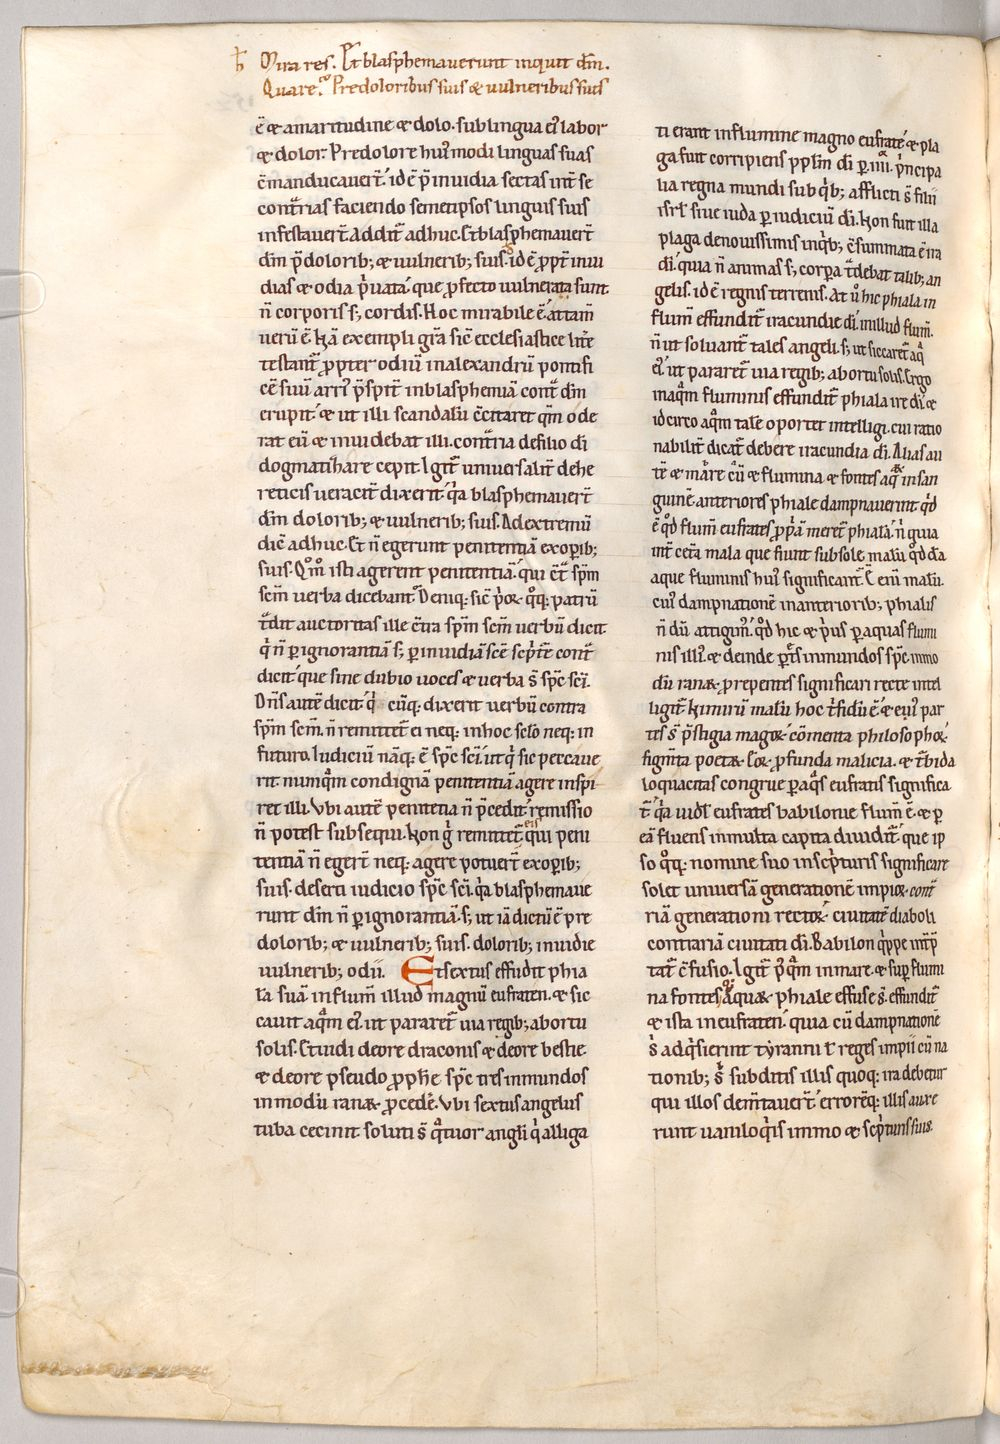 Mira res. Et blasphemaverunt inquit dm̄.
Quare? Predoloribus suis & vulneribus suis
ē & amaritudine & dolo. sub lingua ei᷒ labor
& dolor. Predolore hui᷒ modi linguas suas
c̄manducauer̄t. id ē p̄ inuidia sectas int̄ se
contrarias faciendo semetipsos linguis suis
infestauer̄t. Addit̄ adhuc. Et blasphemauer̄t
dm̄ p̄ dolorib; & uulnerib; suis. id ē ꝓpt̄ inui
dias & odia p̄uata. que ꝓfecto uulnerata sunt
n̄ corporis s; cordis. Hoc mirabile ē. attam̄
ueru ē. Nā exempli gr̄a sic̄ ecclesiastice litt̄e
testant̄ ꝓpter odiū in alexandrū pontifi
cē suū arri᷒ in blasphemiā cont̄ dm̄
erupit. & ut illi scandalū c̄citaret qm̄ ode
rat eū & inuidebat illi. contraria de filio di
dogmatizare cepit. Igit̄ uniuersalit̄ de he
reticis ueracit̄ dixerit. qa blasphemauer̄t
dm̄ dolorib; & uulnerib; suis. Ad extremū
dic̄ adhuc. Et n̄ egerunt penitentiā ex oꝑib;
suis. Qōm isti agerent penitentiā. qui c̄t spm̄
scm̄ uerba dicebant. Deniq; sic̄ p̄oꝝ qq; patrū
tdit auctoritas ille c̄tra spm̄ scm̄ uerbū dicit
q n̄ ꝑ ignorantiā s; ꝑ inuidiā sc̄e cont̄
dicit. que sine dubio uoces & uerba s̄ spc̄ sci.
Dn̄s aute dicit. q cūq; dixerit uerbū contra
spm̄ scm̄. n̄ remittet̄ ei neq; in hoc sc̄lo neq; in
futuro. Iudiciū nāq; ē spc̄ sci. ut q sic peccaue
rit. nunqm̄ condignā penitentiā agere inspi
ret illi. Vbi autē penitetia n̄ p̄cedit. remissio
n̄ potest subsequi. Non q remittet̄ eis qui peni
tentiā n̄ eger̄t neq; agere potuer̄t ex oꝑib;
suis. deserti iudicio spc̄ sci. qa blasphemaue
runt dm̄ n̄ ꝑ ignorantiā. s; ut iā dictū ē pre
dolorib; & uulnerib; suis. dolorib; inuidie
uulnerib; odii. Et sextus effudit phia
lā suā in flum̄ illud magnū eufraten. & sic
cauit aqm̄ ei᷒. ut pararet̄ uia regib; ab ortu
solis. Et uidi de ore draconis & de ore bestie
& de ore pseudo ꝓphe spc̄ tres inmundos
in modū ranaꝝ ꝓcedē. Vbi sextus angelus
tuba cecinit. soluti s̄ qtuor angli q alliga
ti erant in flumine magno eufratē. & pla
ga fuit corripiens ppl̄m di ꝑ iiii. p̄ncipa
lia regna mundi sub qb; afflicti s̄ filii
isrl̄ siue iuda ꝑ iudiciū di. Non fuit illa
plaga de nouissimis in qb; c̄summata ē ira
di. quia n̄ animas s; corꝑa t̄debat talib; an
gelis. id ē regnis terrenis. At u᷒ hic phiala in
flum̄ effundit̄ iracundie di. in illud flum̄.
n̄ ut soluant̄ tales angeli. s; ut siccaret̄ aq
ei᷒. ut pararet̄ uia regib; ab ortu solis. Ergo
in aqm̄ fluminis effundit̄ phiala ire di. &
idcirco aqm̄ talē oportet intelligi. cui ratio
nabilit̄ dicat̄ debere iracundia di. Alias au
tē & mare cū & flumina & fontes aqꝝ in san
guinē. anteriores phiale dampnauerint. qd
ē qd flum̄ eufrates ꝓpā meret̄ phialā. n̄ quia
int̄ cet̄a mala que fiunt sub sole. malū qdda
aque fluminis hui᷒ significant̄. Ē eni malū
cui᷒ dampnationē in anteriorib; phialis
n̄ dū attigim᷒. qd hic & p̄us ꝑ aquas flumi
nis illi᷒. & deinde ꝑ tes inmundos spc̄ inmo
dū ranaꝝ prepentes significari recte intel
ligit̄. Nimirū malū hoc ē. & ei᷒ par
tes s̄ p̄stigia magoꝝ. c̄menta philosophoꝝ.
figm̄ta poetaꝝ. ꝓfunda malicia. & t̄bida
loquacitas congrue ꝑ aqs eufratis significa
t̄. qa uidl̄ eufrates babilonie flum̄ ē. & ꝑ
eā fluens in multa capita diuidit̄. que ip
so qq; nomine suo in scpturis significare
solet uniuersā generationē impioꝝ cont̄
riā generationi rectoꝝ. ciuitatē diaboli
contrariā ciuitati di. Babilon qppe int̄p̄
tat̄ c̄fusio. Igit̄ pqm̄ in mare. & suꝑ flumi
na fontesq; aquaꝝ phiale effuse s̄. effundit̄
& ista in eufraten. quia cū dampnatione
s̄ adqsierint tyranni ł reges impii cū na
tionib; s̄ subditis illis quoq; ira debetur
qui illos dem̄tauer̄t. errorēq; illis auxe
runt uaniloqis immo & scpturis suis.